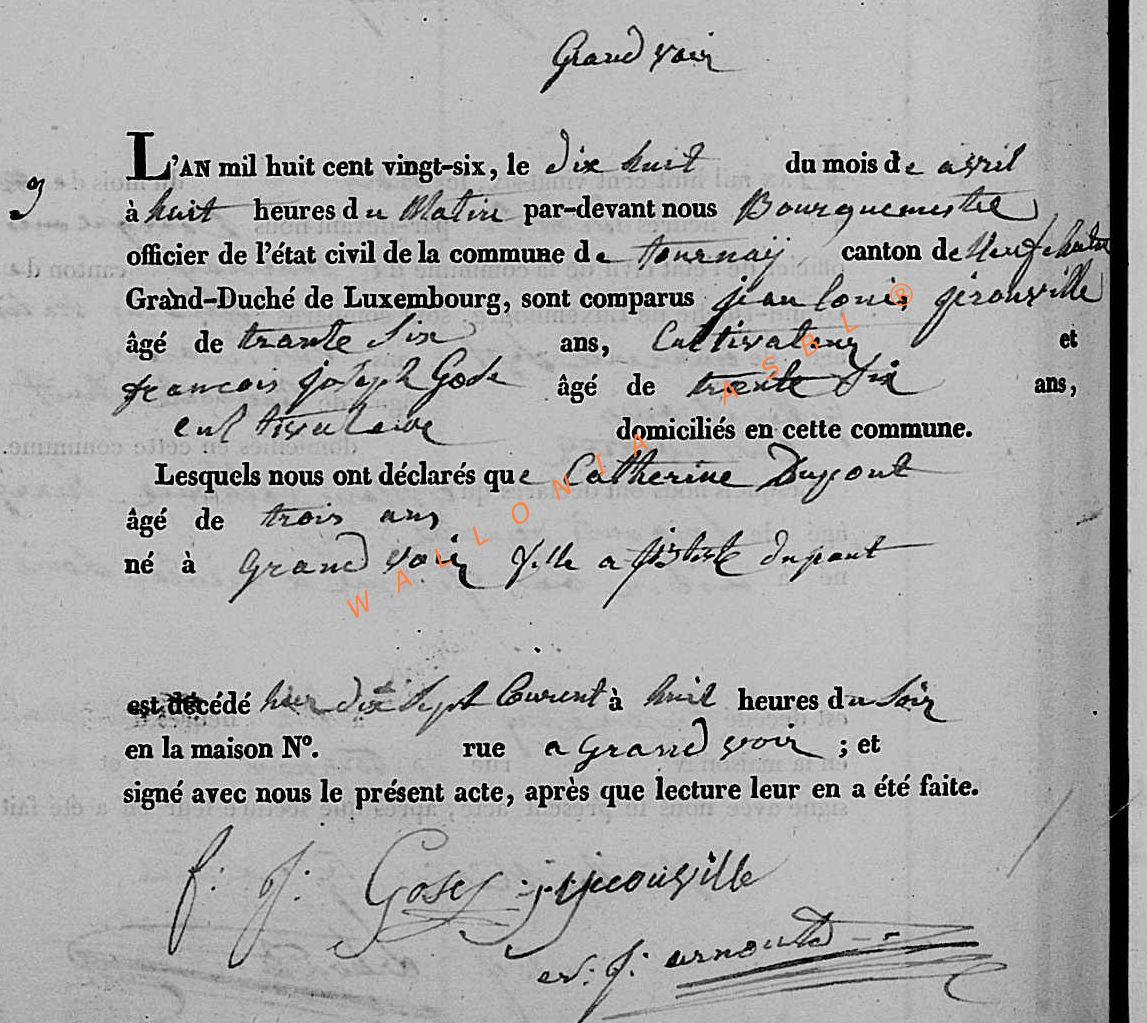 Grand voir
9
L'AN mil huit cent vingt-six, le dix huit du mois de avril
à huit heures du Matin par-devant nous Bourguemestre
officier de l'état civil de la commune de tournay canton de Neufchateau
Grand-Duché de Luxembourg, sont comparus jean louis girouville
âgé de trante Six ans, Cultivateur et
francois joseph Gose âgé de trente Six ans,
cultivateur domiciliés en cette commune.
Lesquels nous ont déclarés que Catherine Dupont
âgé de trois ans
né à Grand voir fille a dupont
est décédé hier dix Sept Courent à huit heures du Soir
en la maison N°. rue a Grand voir ; et
signé avec nous le présent acte, après que lecture leur en a été faite.
f: j: Gose j. j. jirouville
j: arnould
WALLONIA ASBL ®